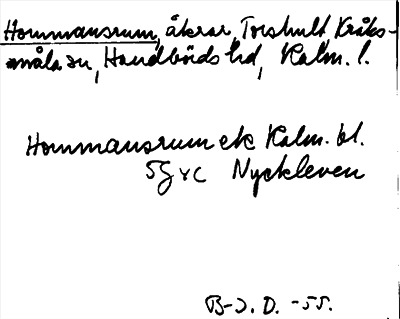 Hommansrum, åkrar, Torshult, Kråks-
måla sn, Handbörds hd, Kalm. l.
Hommansrum ek Kalm. bl.
5G Nyckleven
B-J. D. -55.